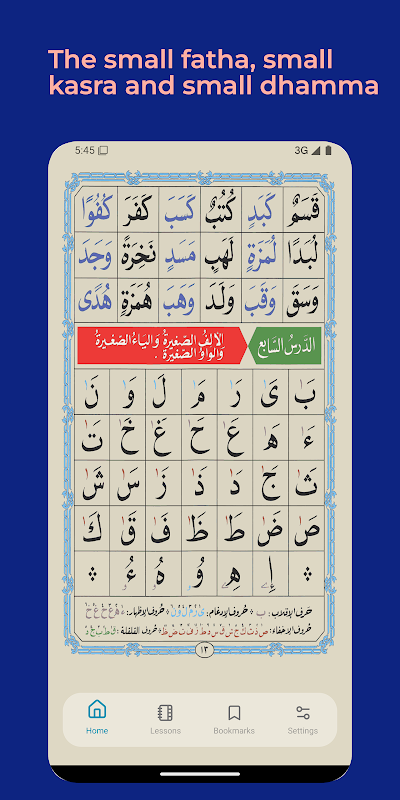 The small fatha, small
kasra and small dhamma
5:45 3G
قَسَمٌ كَبَدٍ كُتُبٌ كَسَبَ كَفَرَ كُفُوًا
لُبَدًا لُمَزَةٍ لَهَبٍ مَسَدٍ نَخِرَةً وَجَدَ
وَسَقَ وَقَبَ وَلَدَ وَهَبَ هُمَزَةٍ هُدًى
الدَّرسُ السَّابِع
اَلاَلِفُ الصَّغِيرَةُ وَاليَاءُ الصَّغِيرَةُ
وَالوَاوُ الصَّغِيرَةُ .
بٰ یٰ رٰ مٰ لٰ وٰ نٰ
ءٰ هٰ عٰ حٰ غٰ خٰ تٰ
ثٰ جٰ دٰ ذٰ زٰ سٰ شٰ
صٰ ضٰ طٰ ظٰ فٰ قٰ كٰ
إٖ هٖ وٗ هٗ ءٗ
حرف الإقلاب: ب * حروف الإدغام: ى ر م ل و ن * حروف الإظهار: ء ه ع ح غ خ
حروف الإخفاء: ص ذ ث ك ج ش ق س د ط ز ف ت ض ظ * حروف القلقلة: ق ط ب ج د
١٣
Home Lessons Bookmarks Settings